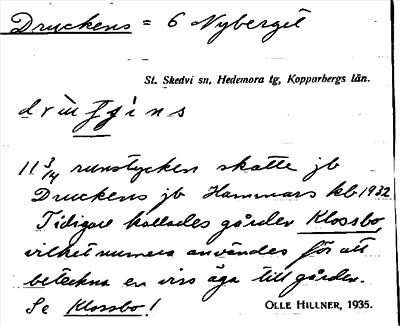 Druckens = 6 Nyberget
St. Skedvi sn, Hedemora tg, Kopparbergs län.
11 3/4 runstycken skatte jb
Druckens jb Hammars kb 1932
Tidigare kallades gården Klossbo,
vilket numera användes för att
beteckna en viss äga till gården.
Se Klossbo!
OLLE HILLNER, 1935.